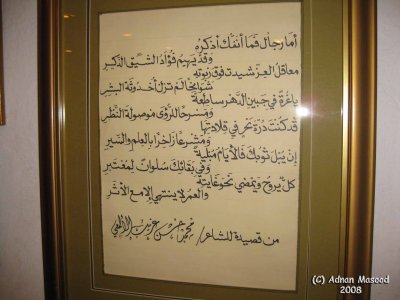 أما رجال فما أنفك أذكره
وقد يهيم فؤاد الشيق الذكر
معاقل العز شيدت فوق ربوته
شوامخا لم تزل أحدوثة البشر
ياغرة في جبين الدهر ساطعة
ومسرحا للرؤى موصولة النظر
قد كنت درة نحر في قلادتها
ومشرعا زاخرا بالعلم والسير
إن يبل ثوبك فالأيام مبلية
وفي بقائك سلوان لمعتبر
كل يروح ويمضي نحو غايته
والعمر لا ينتهي إلا مع الأثر
من قصيدة للشاعر / محمد حسن غريب
(C) Adnan Masood
2008